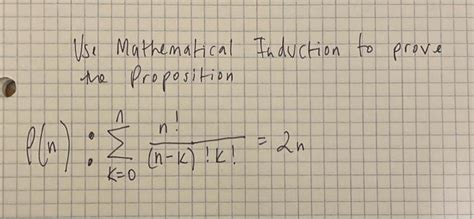 Use Mathematical Induction to prove
the Proposition
P(n) : n∑k=0 n!/(n-k)!k! = 2n